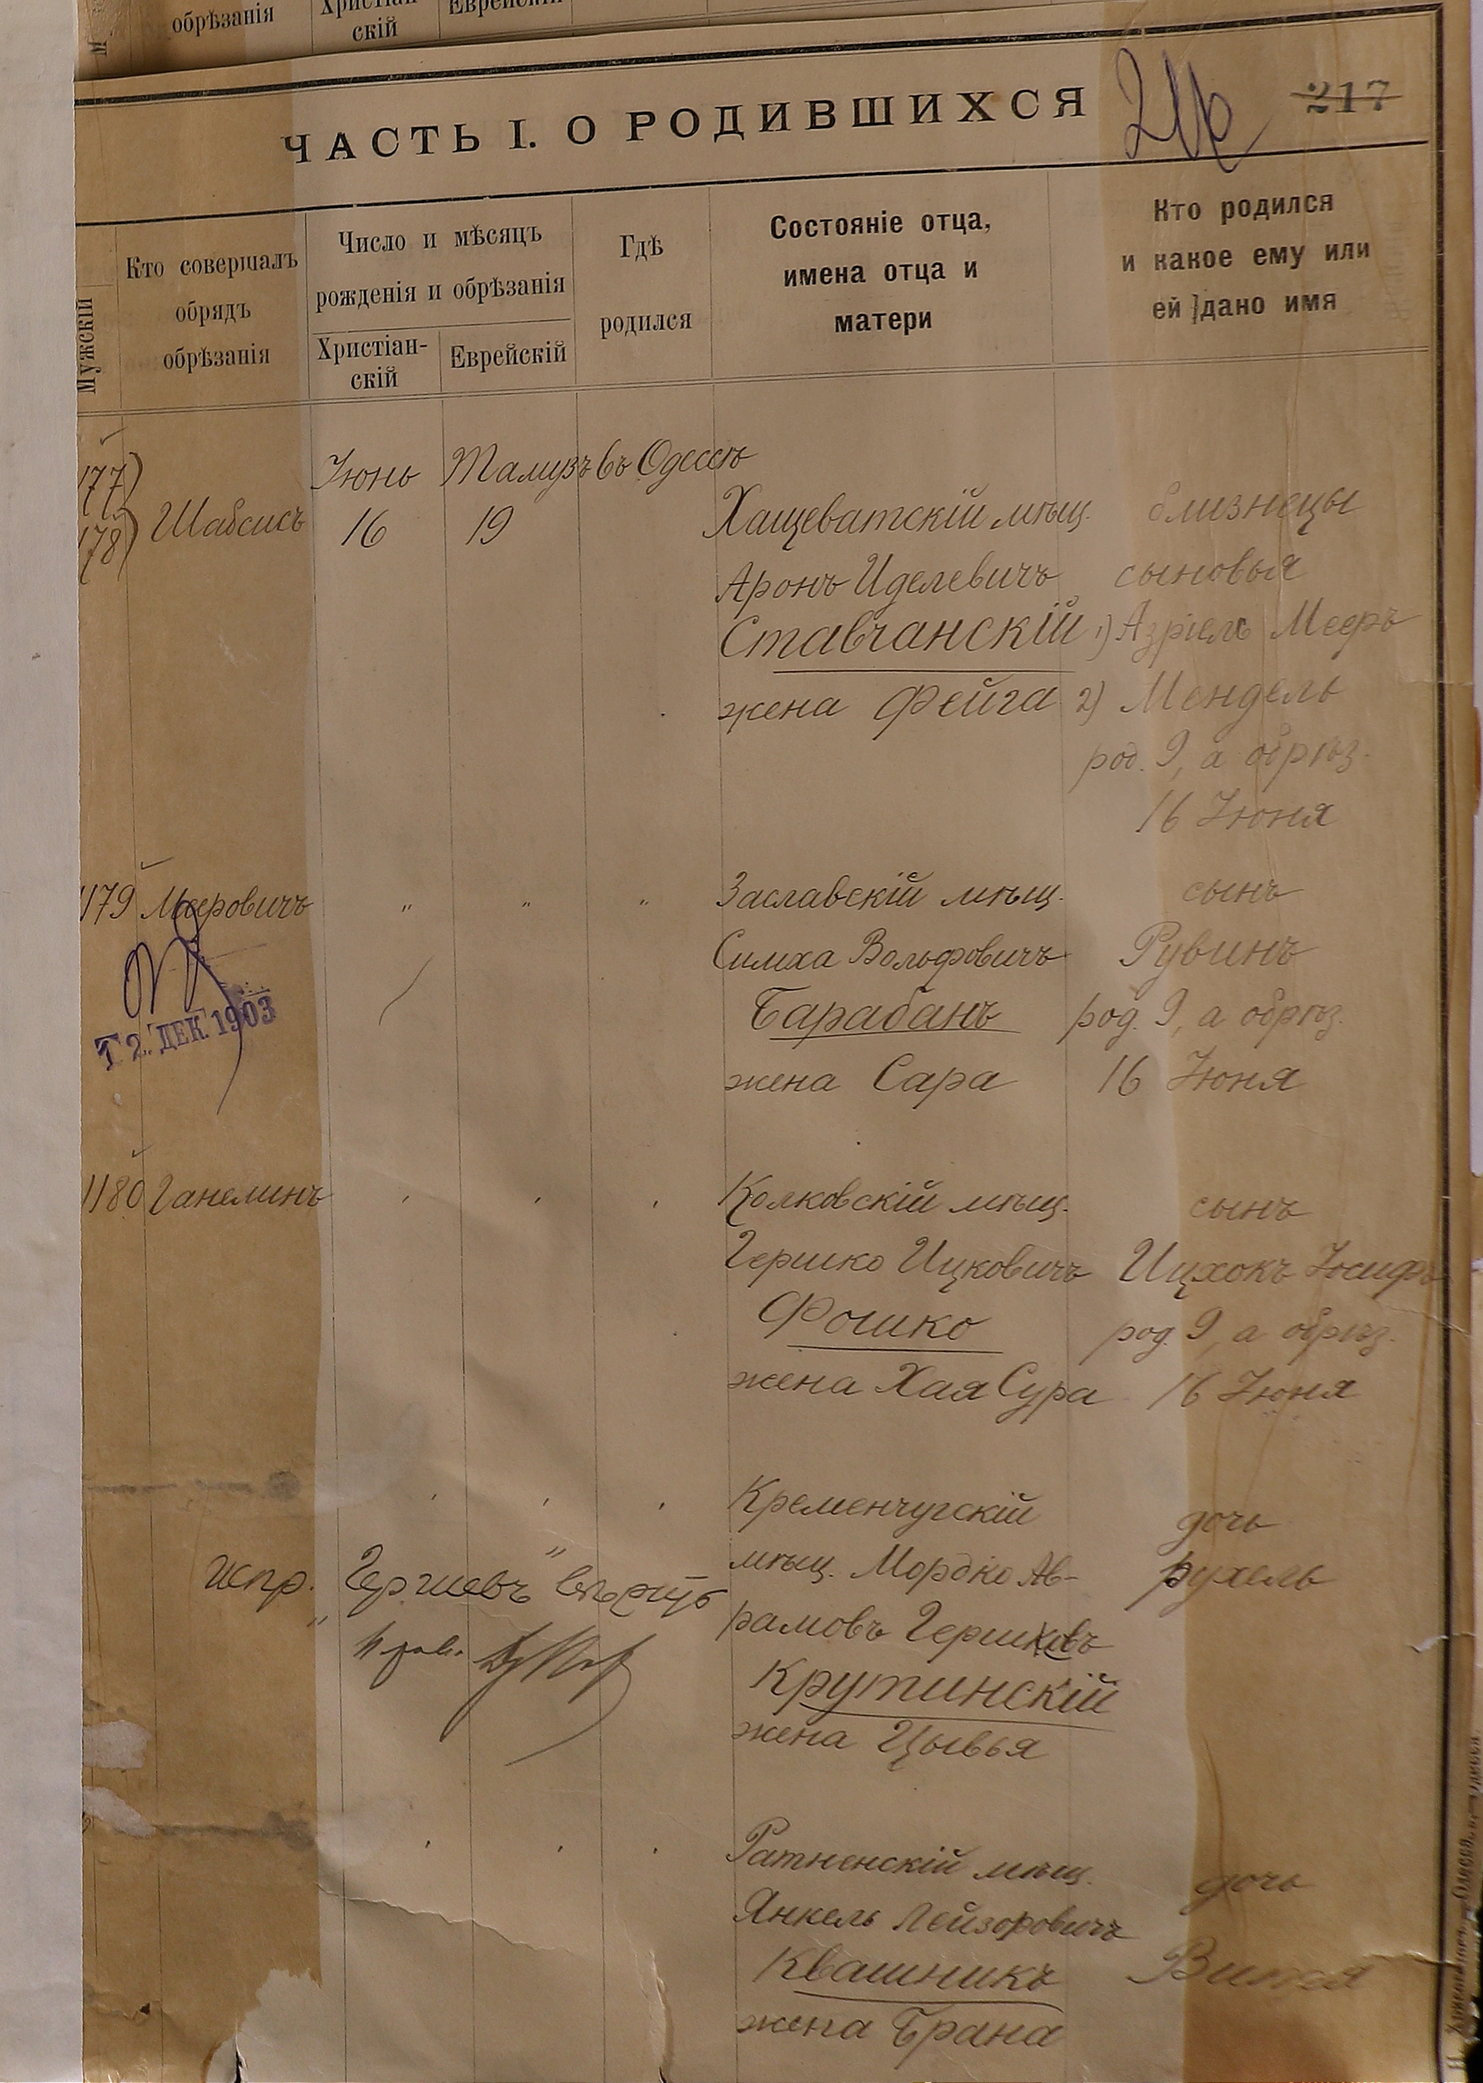 обрѣзанія
скій
ЧАСТЬ I. О РОДИВШИХСЯ
217
Мужскій
Кто совершалъ
обрядъ
обрѣзанія
Число и мѣсяцъ
рожденія и обрѣзанія
Христіан-
скій
Еврейскій
Гдѣ
родился
Состояніе отца,
имена отца и
матери
Кто родился
и какое ему или
ей дано имя
177
178
Шабсисъ
Іюнь
16
Тамузъ
19
въ Одессѣ
Хащеватскій мѣщ.
Аронъ Иделевичъ
Ставчанскій
жена Фейга
близнецы
сыновья
1) Азріель Мееръ
2) Мендель
род. 9, а обрѣз.
16 Іюня
1179 Мееровичъ
" " "
Заславскій мѣщ.
Симха Вольфовичъ
Барабанъ
жена Сара
сынъ
Рувинъ
род. 9, а обрѣз.
16 Іюня
12. ДЕК 1903
1180 Ганелинъ
Колковскій мѣщ.
Гершко Ицковичъ
Фошко
жена Хая Сура
сынъ
Ицхокъ Іосифъ
род. 9, а обрѣз.
16 Іюня
Кременчугскій
мѣщ. Мордко Ав-
рамовъ Гершковъ
Крутинскій
жена Цывья
дочь
Рухель
испр.
Ратненскій мѣщ.
Янкель Лейзоровичъ
Квашникъ
жена Брана
дочь